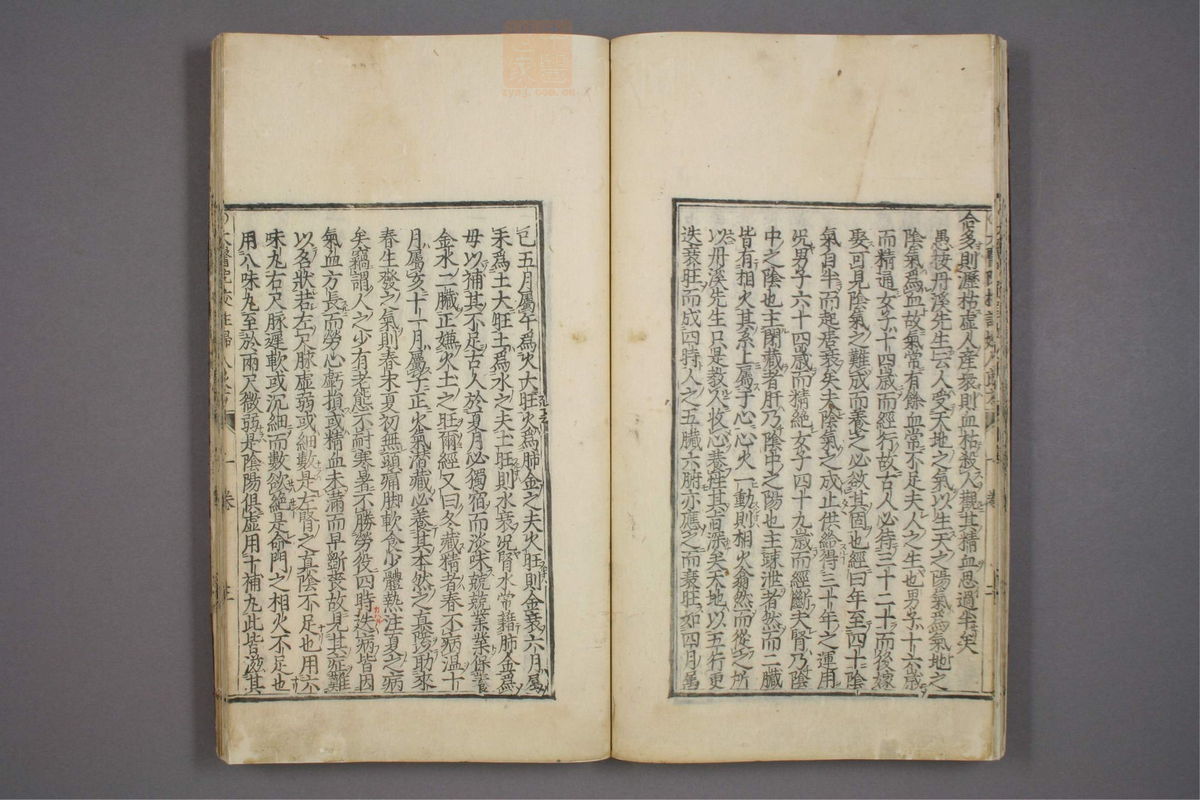 合多則瀝枯虛人産衆則血枯殺人觀其精血思過半矣
愚按丹溪先生云人受天地之氣以生天之陽氣爲氣地之
陰氣爲血故氣常有餘血常不足夫人之生也男子十六歲
而精通女子十四歲而經行故古人必待三十二十而後嫁
娶可見陰氣之難成而養之必欲其固也經曰年至四十陰
氣自半而起居衰矣夫陰氣之成止供給得三十年之運用
况男子六十四歲而精絶女子四十九歲而經斷夫腎乃陰
中之陰也主閉藏者肝乃陰中之陽也主疎泄者然而二臟
皆有相火其系上屬于心心火一動則相火翕然而從之所
以丹溪先生只是教人收心養性其旨深矣天地以五行更
迭衰旺而成四時人之五臟六腑亦應之而衰旺如四月屬
巳五月屬午爲火大旺火爲肺金之夫火旺則金衰六月屬
未爲土大旺土爲水之夫土旺則水衰况腎水常藉肺金爲
母以補其不足古人於夏月必獨宿而淡味兢兢業業保養
金水二臟正嫌火土之旺爾經又曰冬藏精者春不病温十
月屬亥十一月屬子正火氣潜藏必養其本然之真陰助來
春生發之氣則春末夏初無頭痛脚軟食少體熱注夏之病
矣竊謂人之少有老態不耐寒暑不勝勞役四時迭病皆因
氣血方長而勞心虧損或精血未滿而早斵喪故見其症難
以名狀若左尺脉虛弱或細數是左腎之真陰不足也用六
味丸右尺脉遲軟或沉細而數欲絶是命門之相火不足也
用八味丸至於兩尺微弱是陰陽俱虛用十補丸此皆滋其